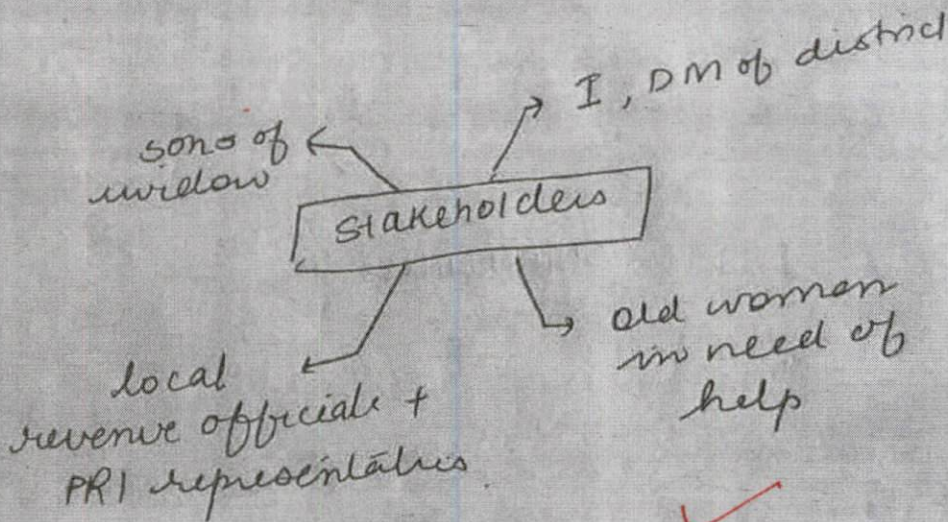 I, DM of district
sons of
widow
Stakeholders
old woman
in need of
help
local
revenue officials +
PRI representatives